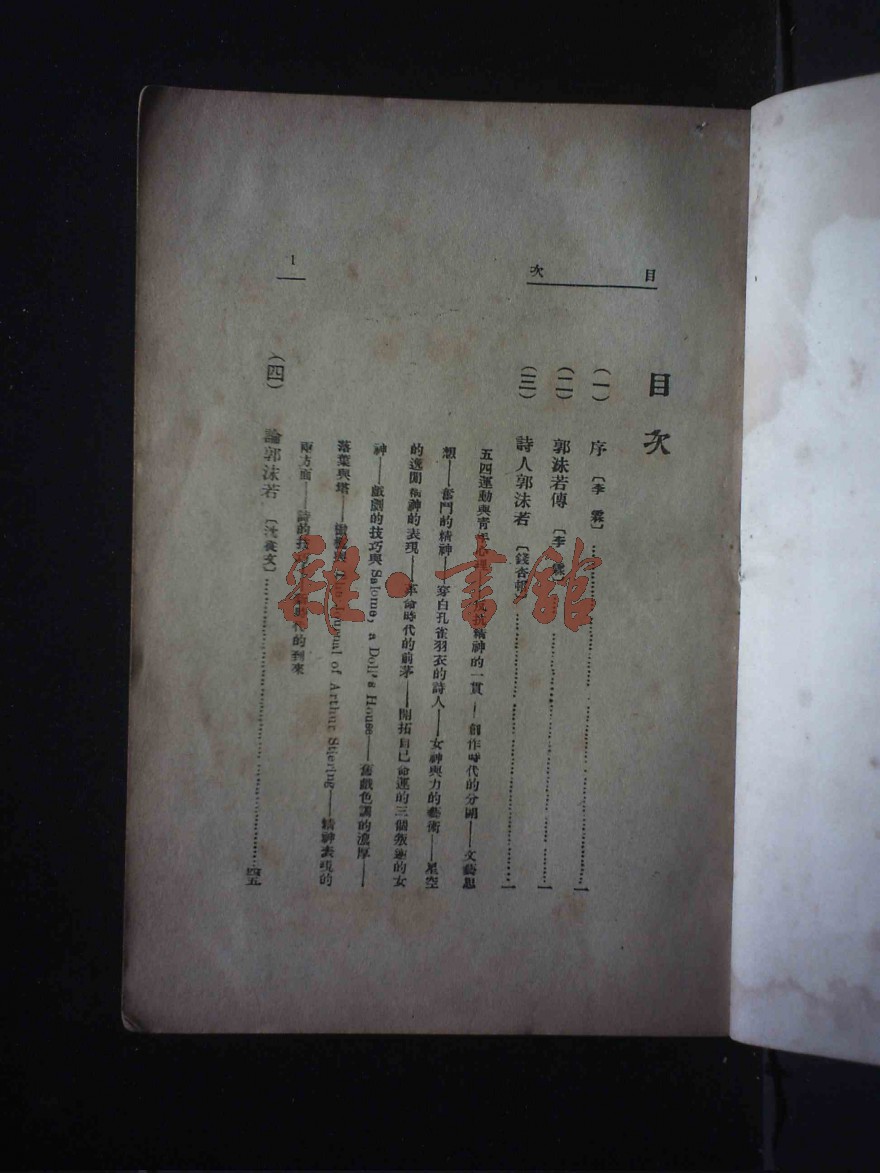 目次
1
目次
(一) 序 〔李霖〕……一
(二) 郭沫若傳 〔李霖〕……一
(三) 詩人郭沫若 〔錢杏邨〕……一
五四運動與青年心理——反抗精神的一貫——創作時代的分期——文藝思
想——奮鬥的精神——穿白孔雀羽衣的詩人——女神與力的藝術——星空
的逸閒精神的表現——革命時代的前茅——開拓自己命運的三個叛逆的女
神——戲劇的技巧與Salome, a Doll's House——舊戲色調的濃厚——
落葉與塔——與 The Journal of Arthur Stirling——精神表現的
兩方面——詩的技巧——時代的到來
(四) 論郭沫若 〔沈從文〕……四五
雜·書館